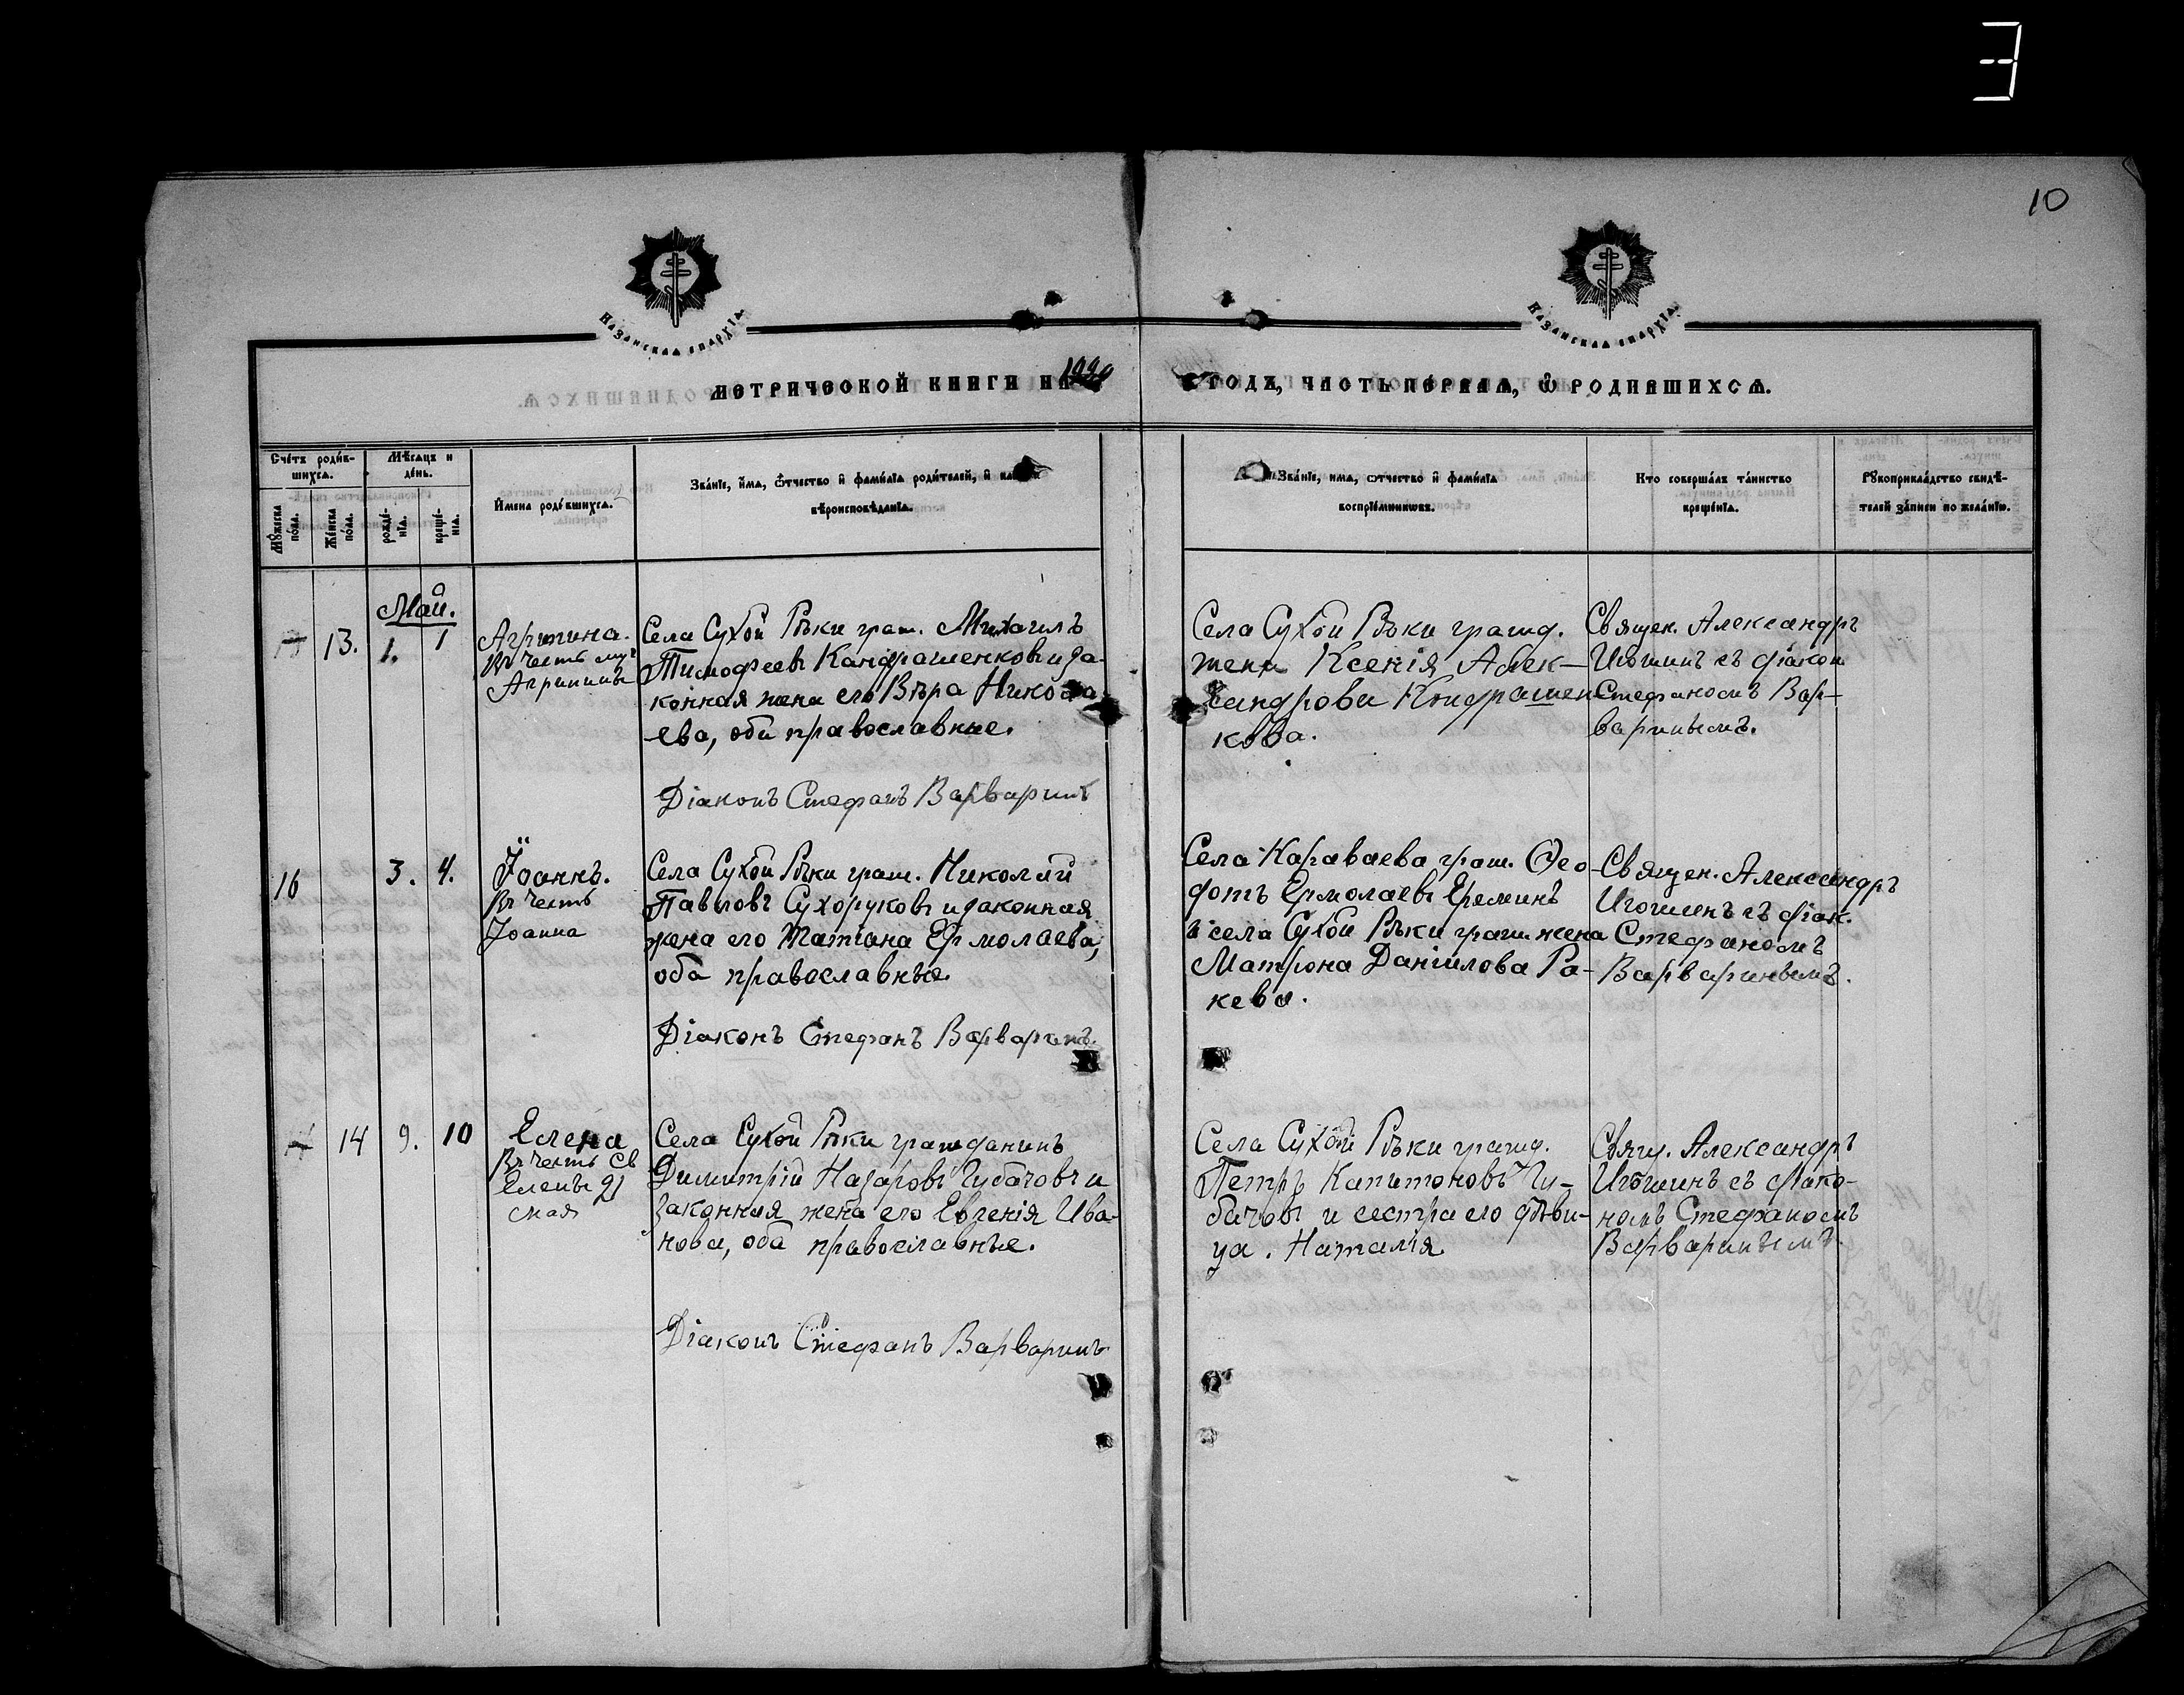 10
КАЗАНСКАѦ ЄПАРХІѦ
КАЗАНСКАѦ ЄПАРХІѦ
МЕТРИЧЕСКОЙ КНИГИ НА 1920 ГОДЪ, ЧАСТЬ ПЕРВАѦ, Ѽ РОДИВШИХСѦ.
Счетъ роди́в-
шихсѧ.
Мѣсяцъ и
де́нь.
Мꙋжеска
по́ла.
Же́нска
по́ла.
рожде́-
нїѧ.
креще́-
нїѧ.
И҆мена роди́вшихсѧ.
Зва́нїе, и҆мѧ, ѻ҆́тчество и҆ фами́лїѧ роди́телей, и҆
вѣроисповѣ́данїѧ.
Зва́нїе, имѧ, ѻтчество и҆ фами́лїѧ
воспрїе́мникѡвъ.
Кто соверша́лъ та́инство
креще́нїѧ.
Рꙋкоприкла́дство свидѣ́-
телей за́писи по жела́нїю.
Май.
13. 1. 1
Агрипина.
Въ честь муч
Агрипины
Села Сухой Рѣки граж. Михаилъ
Тимофеевъ Кандрашенковъ и за-
конная жена его Вѣра Никола
ева, оба православные.
Діаконъ Стефанъ Варваринъ
Села Сухой Рѣки гражд.
жена Ксенія Алек-
сандрова Кондрашен
кова.
Священ. Александръ
Игошинъ съ діакон
Стефаномъ Вар-
вариннымъ.
16 3. 4.
Іоаннъ.
Въ честь
Іоанна
Села Сухой Рѣки граж. Николай
Павловъ Сухоруковъ и законная
жена его Татіана Ермолаева,
оба православные
Діаконъ Стефанъ Варваринъ.
Села Караваева граж. Ѳео-
дотъ Ермолаевъ Ереминъ
и села Сухой Рѣки граж жена
Матрона Даніилова Ра-
кева.
Священ. Александръ
Игошинъ съ діак.
Стефаномъ
Варвариным.
14 9. 10
Елена
Въ честь св
Елены 21
мая
Села Сухой Рѣки гражданинъ
Димитрій Назаровъ Чубачовъ и
законная жена его Евгенія Ива-
нова, оба православные.
Діаконъ Стефанъ Варваринъ
Села Сухой Рѣки гражд.
Петръ Капитоновъ Чу-
бачовъ и сестра его дѣви-
ца. Наталія
Свящ. Александръ
Игошинъ съ діако-
номъ Стефаномъ
Варваринымъ.